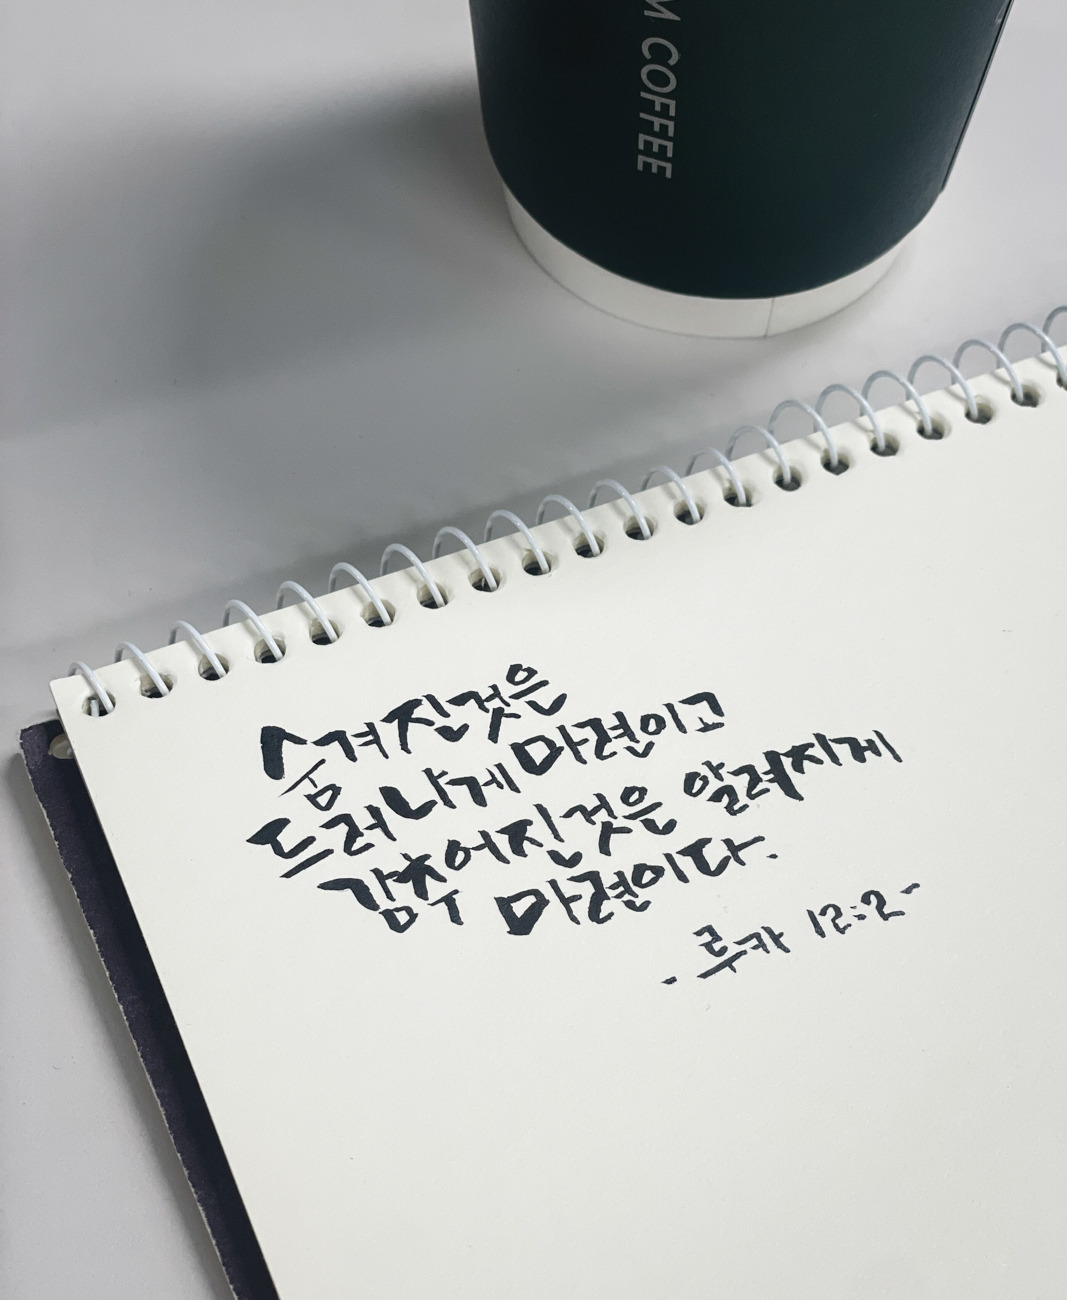 M COFFEE
숨겨진것은
드러나게 마련이고
감추어진것은 알려지게
마련이다.
- 루카 12:2 -